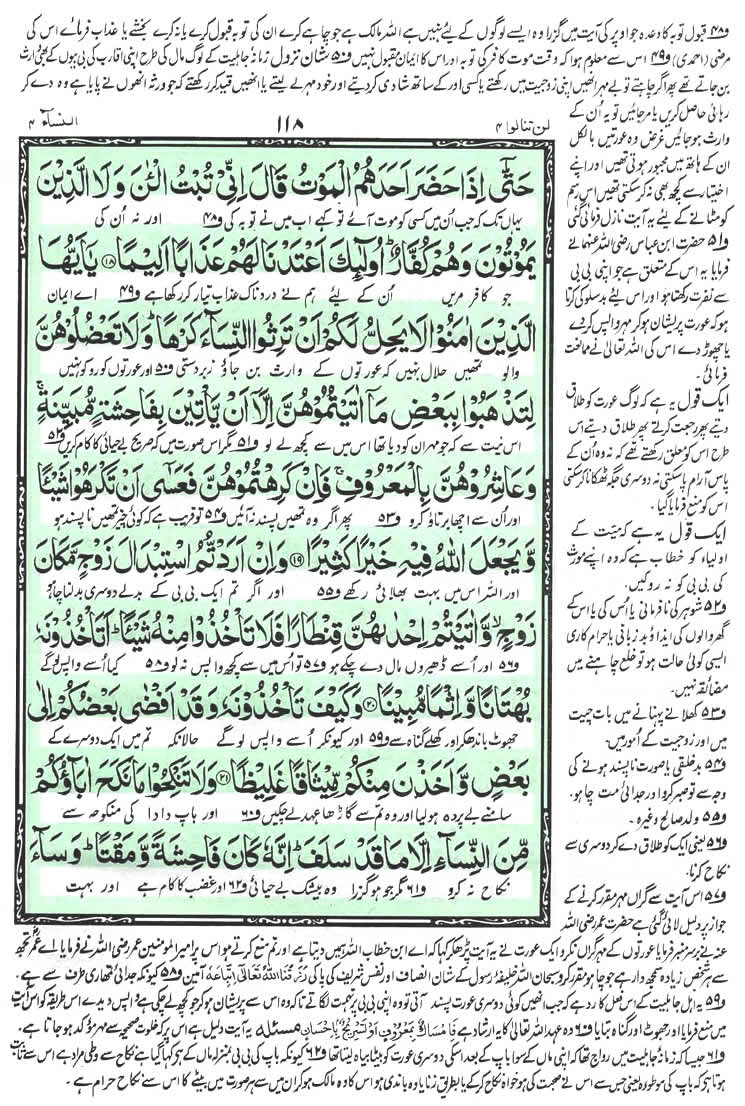 و۴۸ قبول توبہ کا وعدہ جو اوپر کی آیت میں گزرا وہ ایسے لوگوں کے لیے نہیں ہے اللہ مالک ہے جو چاہے کرے ان کی توبہ قبول کرے یا نہ کرے بخشے یا عذاب فرمائے اس کی
مرضی (احمدی) و۴۹ اس سے معلوم ہوا کہ وقت موت کافر کی توبہ اور اس کا ایمان مقبول نہیں و۵۰ شان نزول زمانہ جاہلیت کے لوگ مال کی طرح اپنی اقارب کی بی بیوں کے بھی وارث
بن جاتے تھے پھر اگر چاہتے تو بے مہر انھیں اپنی زوجیت میں رکھتے یا کسی اور کے ساتھ شادی کر دیتے اور خود مہر لے لیتے یا انھیں قید کر رکھتے کہ جو ورثہ انھوں نے پایا ہے وہ دے کر
لن تنالوا ۴
۱۱۸
النساء ۴
حَتّٰۤی اِذَا حَضَرَ اَحَدَهُمُ الْمَوْتُ قَالَ اِنِّیْ تُبْتُ الْـٰٔنَ وَ لَا الَّذِیْنَ
یہاں تک کہ جب ان میں کسی کو موت آئے تو کہے اب میں نے توبہ کی و۴۸ اور نہ ان کی
یَمُوْتُوْنَ وَ هُمْ كُفَّارٌ ؕ اُولٰٓىِٕكَ اَعْتَدْنَا لَهُمْ عَذَابًا اَلِیْمًا ﴿۱۸﴾ یٰۤاَیُّهَا
جو کافر مریں ان کے لیے ہم نے دردناک عذاب تیار کر رکھا ہے و۴۹ اے ایمان
الَّذِیْنَ اٰمَنُوْا لَا یَحِلُّ لَكُمْ اَنْ تَرِثُوا النِّسَآءَ كَرْهًا ؕ وَ لَا تَعْضُلُوْهُنَّ
والو تمھیں حلال نہیں کہ عورتوں کے وارث بن جاؤ زبردستی و۵۰ اور عورتوں کو روکو نہیں
لِتَذْهَبُوْا بِبَعْضِ مَاۤ اٰتَیْتُمُوْهُنَّ اِلَّاۤ اَنْ یَّاْتِیْنَ بِفَاحِشَةٍ مُّبَیِّنَةٍ ۚ
اس نیت سے کہ جو مہر ان کو دیا تھا اس میں سے کچھ لے لو و۵۱ مگر اس صورت میں کہ صریح بے حیائی کا کام کریں و۵۲
وَ عَاشِرُوْهُنَّ بِالْمَعْرُوْفِ ۚ فَاِنْ كَرِهْتُمُوْهُنَّ فَعَسٰۤی اَنْ تَكْرَهُوْا شَیْـًٔا
اور ان سے اچھا برتاؤ کرو و۵۳ پھر اگر وہ تمھیں پسند نہ آئیں و۵۴ تو قریب ہے کہ کوئی چیز تمھیں ناپسند ہو
وَّ یَجْعَلَ اللّٰهُ فِیْهِ خَیْرًا كَثِیْرًا ﴿۱۹﴾ وَ اِنْ اَرَدْتُّمُ اسْتِبْدَالَ زَوْجٍ مَّكَانَ
اور اللہ اس میں بہت بھلائی رکھے و۵۵ اور اگر تم ایک بی بی کے بدلے دوسری بدلنا چاہو
زَوْجٍ ۙ وَّ اٰتَیْتُمْ اِحْدٰىهُنَّ قِنْطَارًا فَلَا تَاْخُذُوْا مِنْهُ شَیْـًٔا ؕ اَتَاْخُذُوْنَهٗ
و۵۶ اور اسے ڈھیروں مال دے چکے ہو و۵۷ تو اس میں سے کچھ واپس نہ لو و۵۸ کیا اسے واپس لو گے
بُهْتَانًا وَّ اِثْمًا مُّبِیْنًا ﴿۲۰﴾ وَ كَیْفَ تَاْخُذُوْنَهٗ وَ قَدْ اَفْضٰی بَعْضُكُمْ اِلٰی
جھوٹ باندھ کر اور کھلے گناہ سے و۵۹ اور کیونکر اسے واپس لو گے حالانکہ تم میں ایک دوسرے کے
بَعْضٍ وَّ اَخَذْنَ مِنْكُمْ مِّیْثَاقًا غَلِیْظًا ﴿۲۱﴾ وَ لَا تَنْكِحُوْا مَا نَكَحَ اٰبَآؤُكُمْ
سامنے بے پردہ ہو لیا اور وہ تم سے گاڑھا عہد لے چکیں و۶۰ اور باپ دادا کی منکوحہ سے
مِّنَ النِّسَآءِ اِلَّا مَا قَدْ سَلَفَ ؕ اِنَّهٗ كَانَ فَاحِشَةً وَّ مَقْتًا ؕ وَ سَآءَ
نکاح نہ کرو و۶۱ مگر جو ہو گزرا وہ بیشک بے حیائی و۶۲ اور غضب کا کام ہے اور بہت
رہائی حاصل کریں یا مر جائیں تو یہ ان کے
وارث ہو جائیں غرض وہ عورتیں بالکل
ان کے ہاتھ میں مجبور ہوتی تھیں اور اپنے
اختیار سے کچھ بھی نہ کر سکتی تھیں اس رسم
کو مٹانے کے لیے یہ آیت نازل فرمائی گئی
و۵۱ حضرت ابن عباس رضی اللہ عنہما نے
فرمایا یہ اس کے متعلق ہے جو اپنی بی بی
سے نفرت رکھتا ہو اور اس لیے بدسلوکی کرتا
ہو کہ عورت پریشان ہو کر مہر واپس کر دے
یا چھوڑ دے اس کی اللہ تعالیٰ نے ممانعت
فرمائی۔
ایک قول یہ ہے کہ لوگ عورت کو طلاق
دیتے پھر رجعت کرتے پھر طلاق دیتے اس
طرح اس کو معلق رکھتے تھے کہ نہ وہ ان کے
پاس آرام پا سکتی نہ دوسری جگہ ٹھکانا کر سکتی
اس کو منع فرمایا گیا۔
ایک قول یہ ہے کہ میت کے
اولیاء کو خطاب ہے کہ وہ اپنے مورث
کی بی بی کو نہ روکیں۔
و۵۲ شوہر کی نافرمانی یا اس کی یا اس کے
گھر والوں کی ایذا و بدزبانی یا حرام کاری
ایسی کوئی حالت ہو تو خلع چاہنے میں
مضائقہ نہیں۔
و۵۳ کھلانے پہنانے میں بات چیت
میں اور زوجیت کے امور میں۔
و۵۴ بدخلقی یا صورت ناپسند ہونے کی
وجہ سے تو صبر کرو اور جدائی مت چاہو۔
و۵۵ ولد صالح وغیرہ۔
و۵۶ یعنی ایک کو طلاق دے کر دوسری سے
نکاح کرنا۔
و۵۷ اس آیت سے گراں مہر مقرر کرنے کے
جواز پر دلیل لائی گئی ہے حضرت عمر رضی اللہ
عنہ نے برسر منبر فرمایا عورتوں کے مہر گراں نہ کرو ایک عورت نے یہ آیت پڑھ کر کہا کہ اے ابن خطاب اللہ ہمیں دیتا ہے اور تم منع کرتے ہو اس پر امیر المومنین عمر رضی اللہ نے فرمایا اے عمر تجھ
سے ہر شخص زیادہ سمجھدار ہے جو چاہو مقرر کرو سبحان اللہ خلیفہ رسول کے شان انصاف اور نفس شریف کی پاکی رَزَقَنَا اللّٰهُ تَعَالٰی اِتِّبَاعَهٗ آمین و۵۸ کیونکہ جدائی تمھاری طرف سے ہے۔
و۵۹ یہ اہل جاہلیت کے اس فعل کا رد ہے کہ جب انھیں کوئی دوسری عورت پسند آتی تو وہ اپنی بی بی پر تہمت لگاتے تاکہ وہ اس سے پریشان ہو کر جو کچھ لے چکی ہے واپس دیدے اس طریقہ کو اس آیت
میں منع فرمایا اور جھوٹ اور گناہ بتایا و۶۰ وہ عہد اللہ تعالیٰ کا یہ ارشاد ہے فَاِمْسَاكٌۢ بِمَعْرُوْفٍ اَوْ تَسْرِیْحٌۢ بِاِحْسَانٍ مسئلہ یہ آیت دلیل ہے اس پر کہ خلوت صحیحہ سے مہر مؤکد ہو جاتا ہے۔
و۶۱ جیسا کہ زمانہ جاہلیت میں رواج تھا کہ اپنی ماں کے سوا باپ کے بعد اس کی دوسری عورت کو بیٹا بیاہ لیتا تھا و۶۲ کیونکہ باپ کی بی بی بمنزلہ ماں کے ہے کہا گیا ہے نکاح سے وطی مراد ہے اس سے ثابت
ہوتا ہے کہ باپ کی موطوءہ یعنی جس سے اس نے صحبت کی ہو خواہ نکاح کر کے یا بطریق زنا یا وہ باندی ہو اس کا وہ مالک ہو کر ان میں سے ہر صورت میں بیٹے کا اس سے نکاح حرام ہے۔